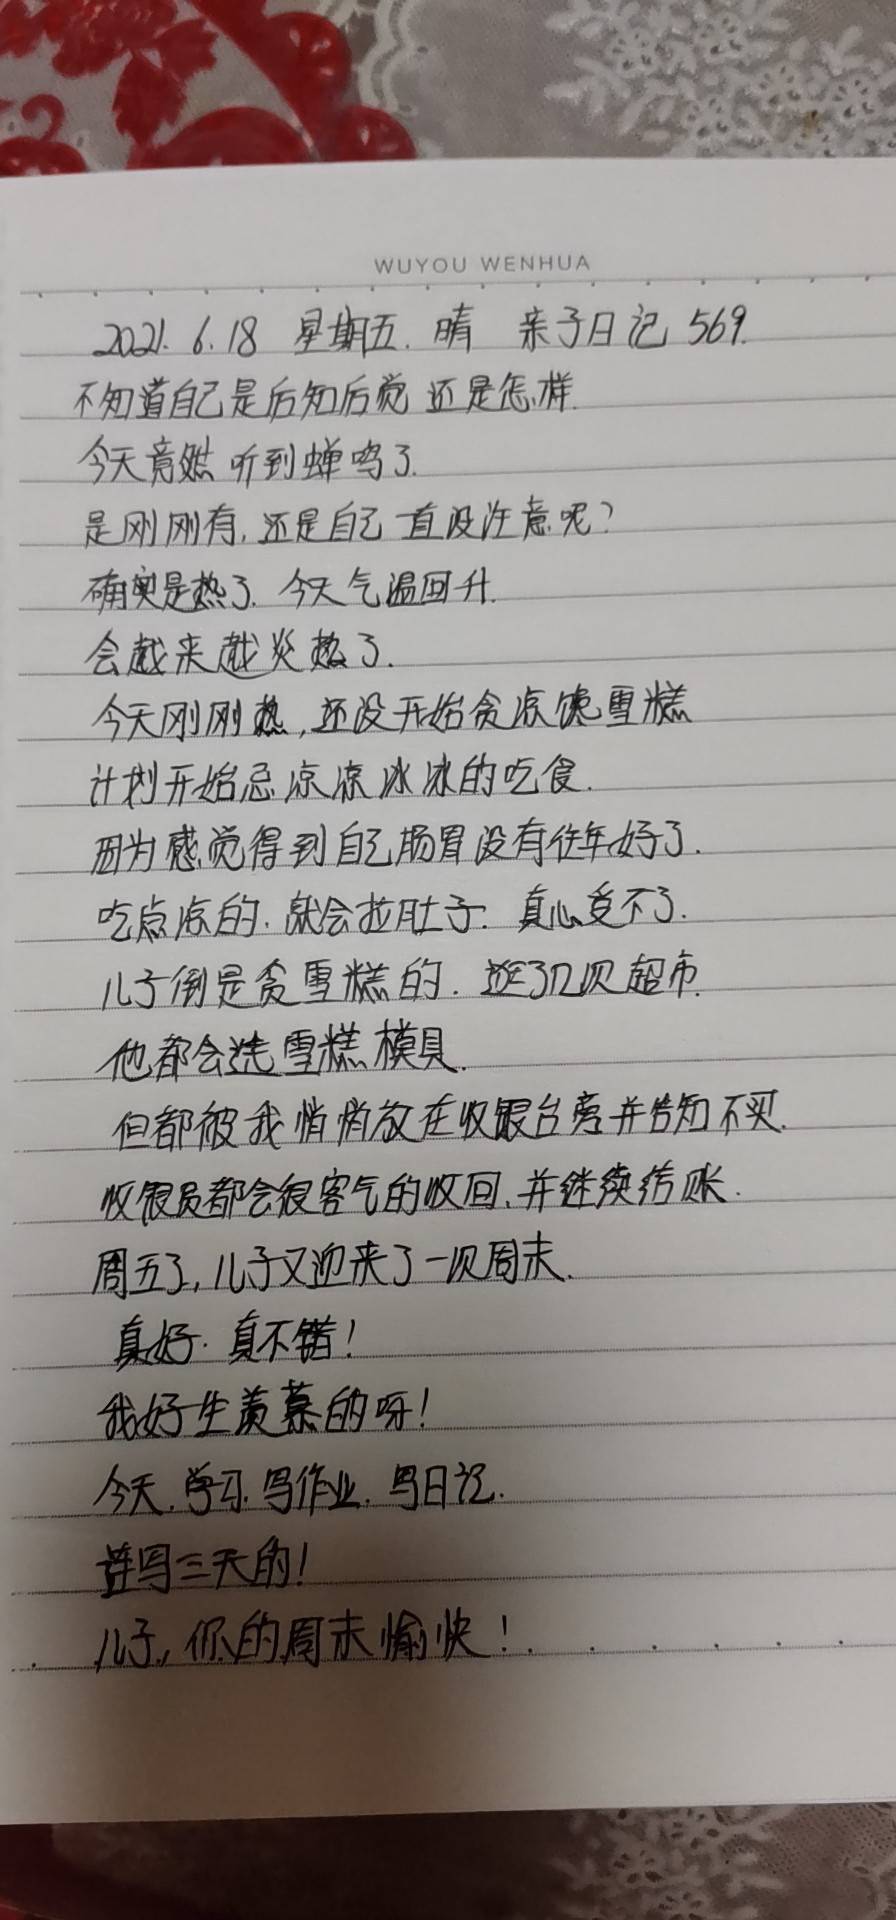 WUYOU WENHUA
2021.6.18 星期五.晴 亲子日记569.
不知道自己是后知后觉还是怎样.
今天竟然听到蝉鸣了.
是刚刚有,还是自己一直没注意呢?
确实是热了.今天气温回升.
会越来越炎热了.
今天刚刚热,还没开始贪凉馋雪糕
计划开始忌凉凉冰冰的吃食.
因为感觉得到自己肠胃没有往年好了.
吃点凉的.就会拉肚子.真心受不了.
儿子倒是贪雪糕的.逛了几次超市.
他都会选雪糕模具.
但都被我悄悄放在收银台旁并告知不买.
收银员都会很客气的收回,并继续结账.
周五了,儿子又迎来了一次周末.
真好.真不错!
我好生羡慕的呀!
今天.学习.写作业.写日记.
连写三天的!
儿子,你的周末愉快!